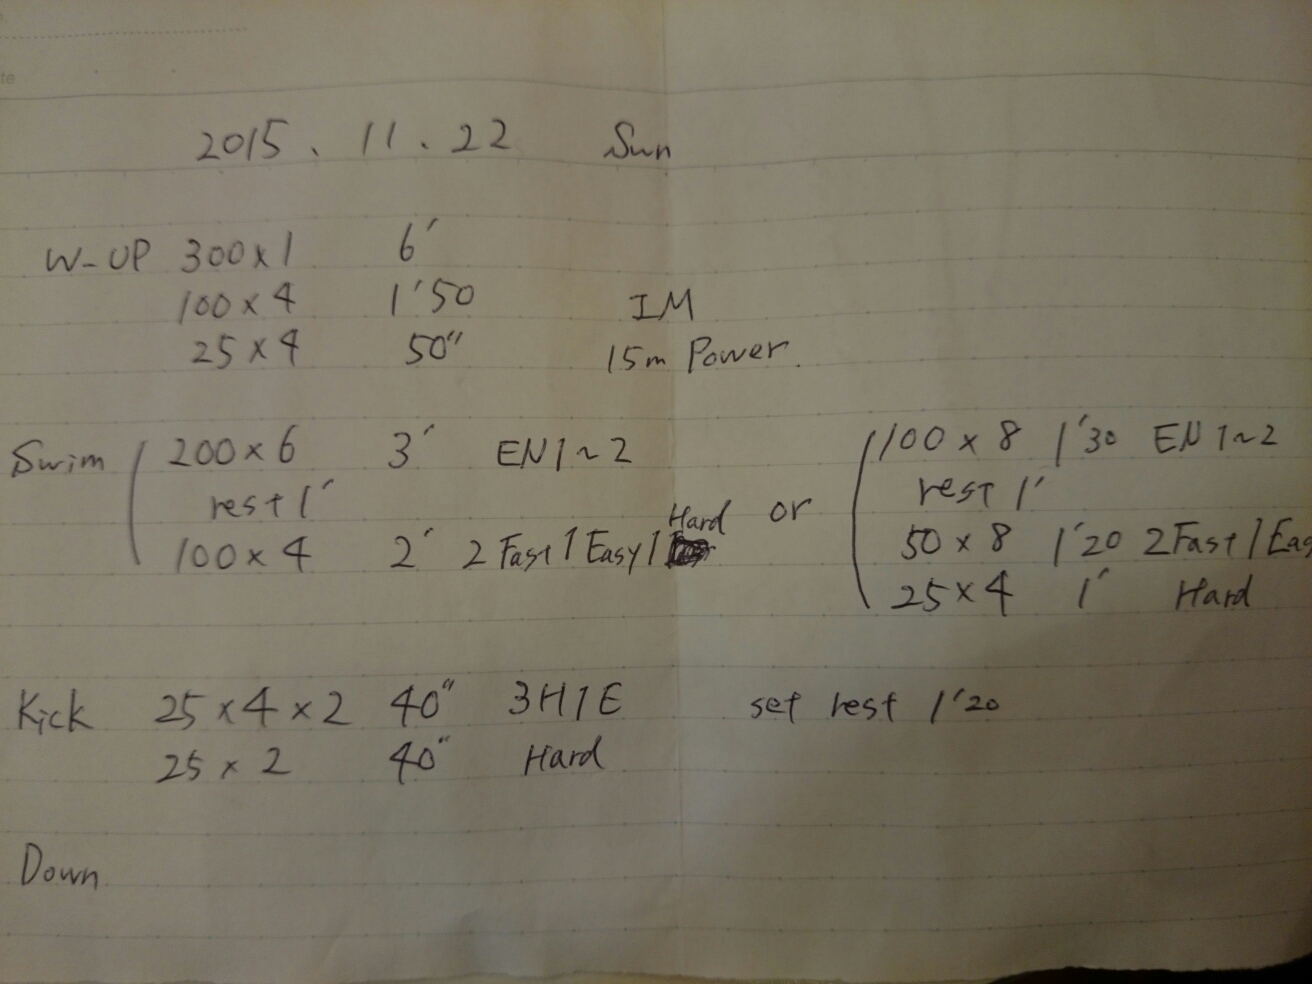 te
2015. 11. 22 Sun
W-UP 300×1 6′
100×4 1′50 IM
25×4 50″ 15m Power.
Swim 200×6 3′ EN1~2
rest 1′
100×4 2′ 2Fast 1Easy 1Hard
or
100×8 1′30 EN1~2
rest 1′
50×8 1′20 2Fast 1Eas
25×4 1′ Hard
Kick 25×4×2 40″ 3H1E set rest 1′20
25×2 40″ Hard
Down